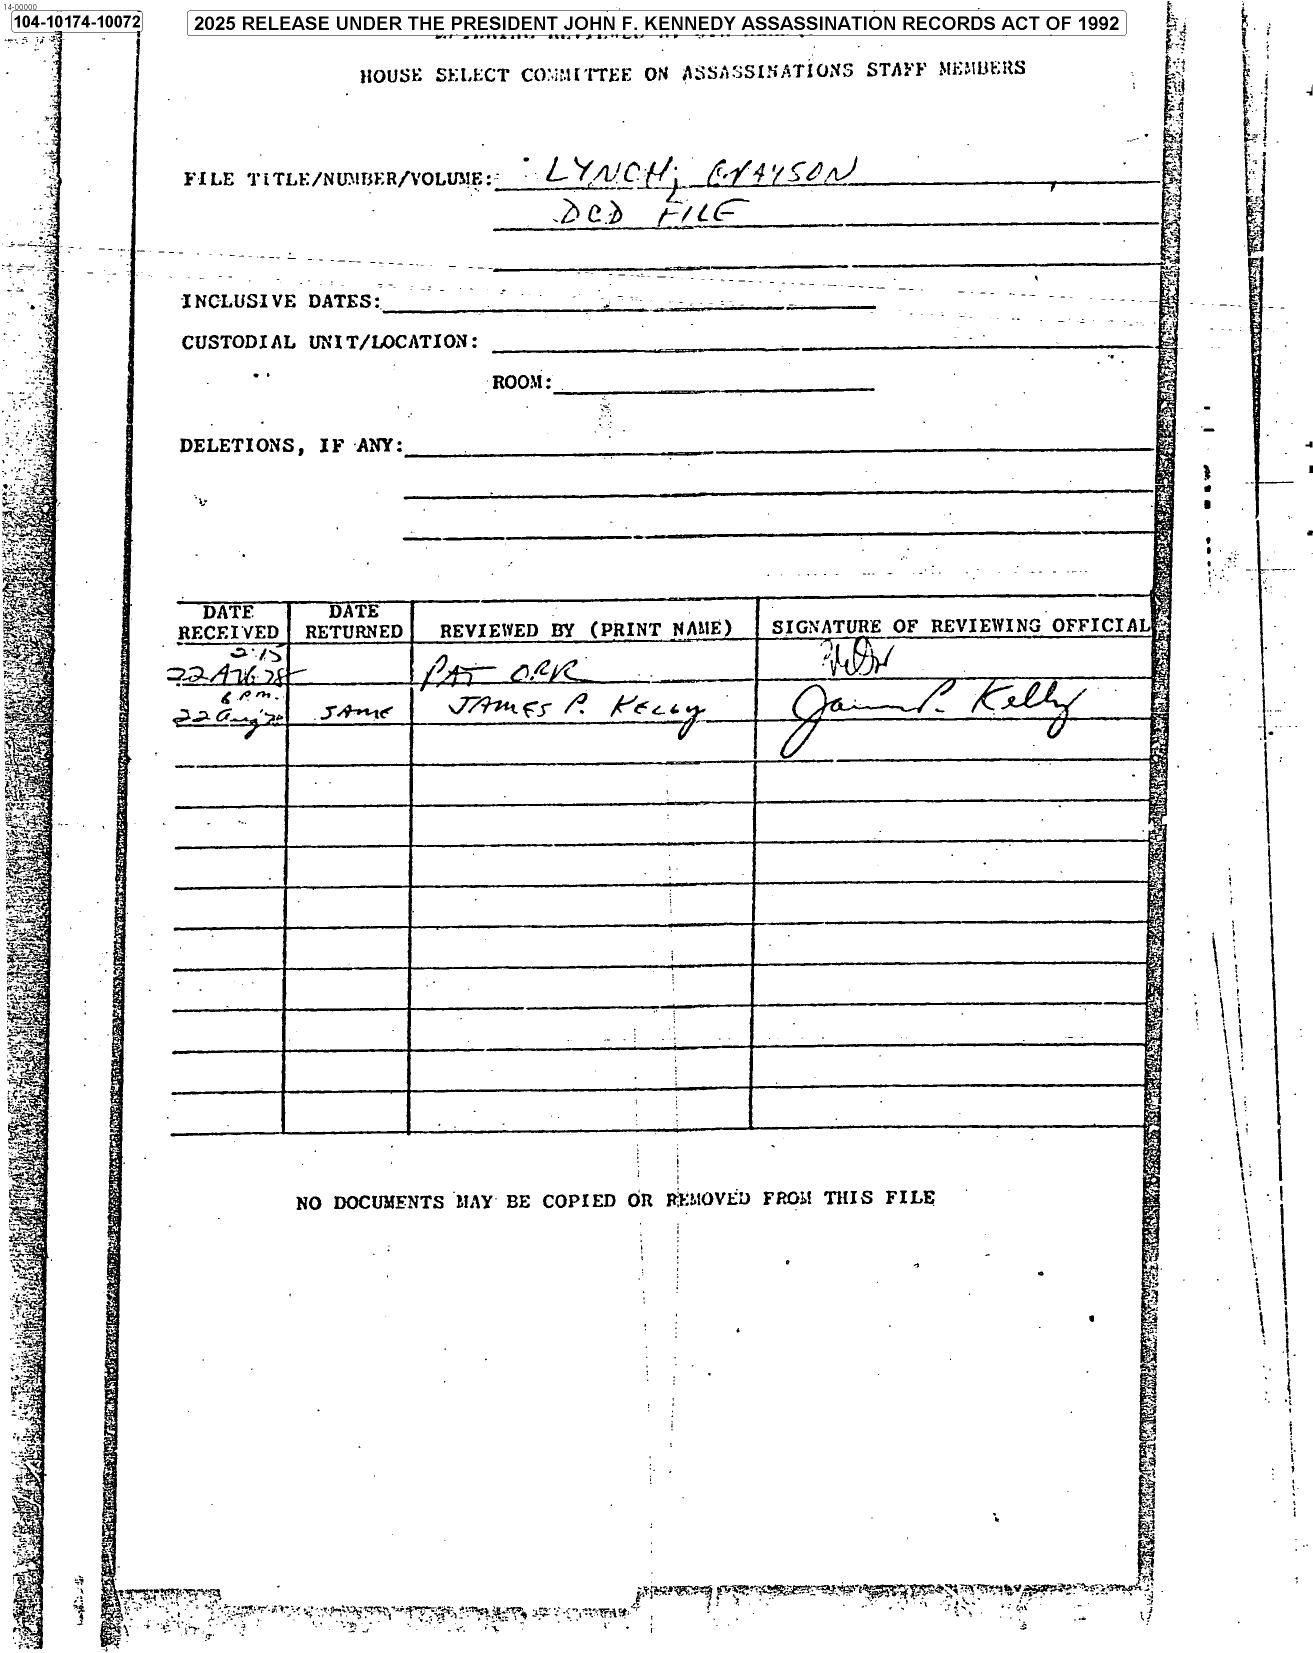 14-00000
104-10174-10072
2025 RELEASE UNDER THE PRESIDENT JOHN F. KENNEDY ASSASSINATION RECORDS ACT OF 1992
HOUSE SELECT COMMITTEE ON ASSASSINATIONS STAFF MEMBERS
FILE TITLE/NUMBER/VOLUME: LYNCH, GRAYSON
DCD FILE
INCLUSIVE DATES:
CUSTODIAL UNIT/LOCATION:
ROOM:
DELETIONS, IF ANY:
DATE RECEIVED DATE RETURNED REVIEWED BY (PRINT NAME) SIGNATURE OF REVIEWING OFFICIAL
2:15
22 AUG 78 PAT ORR
6 pm.
22 Aug 78 SAME JAMES P. KELLY James P. Kelly
NO DOCUMENTS MAY BE COPIED OR REMOVED FROM THIS FILE